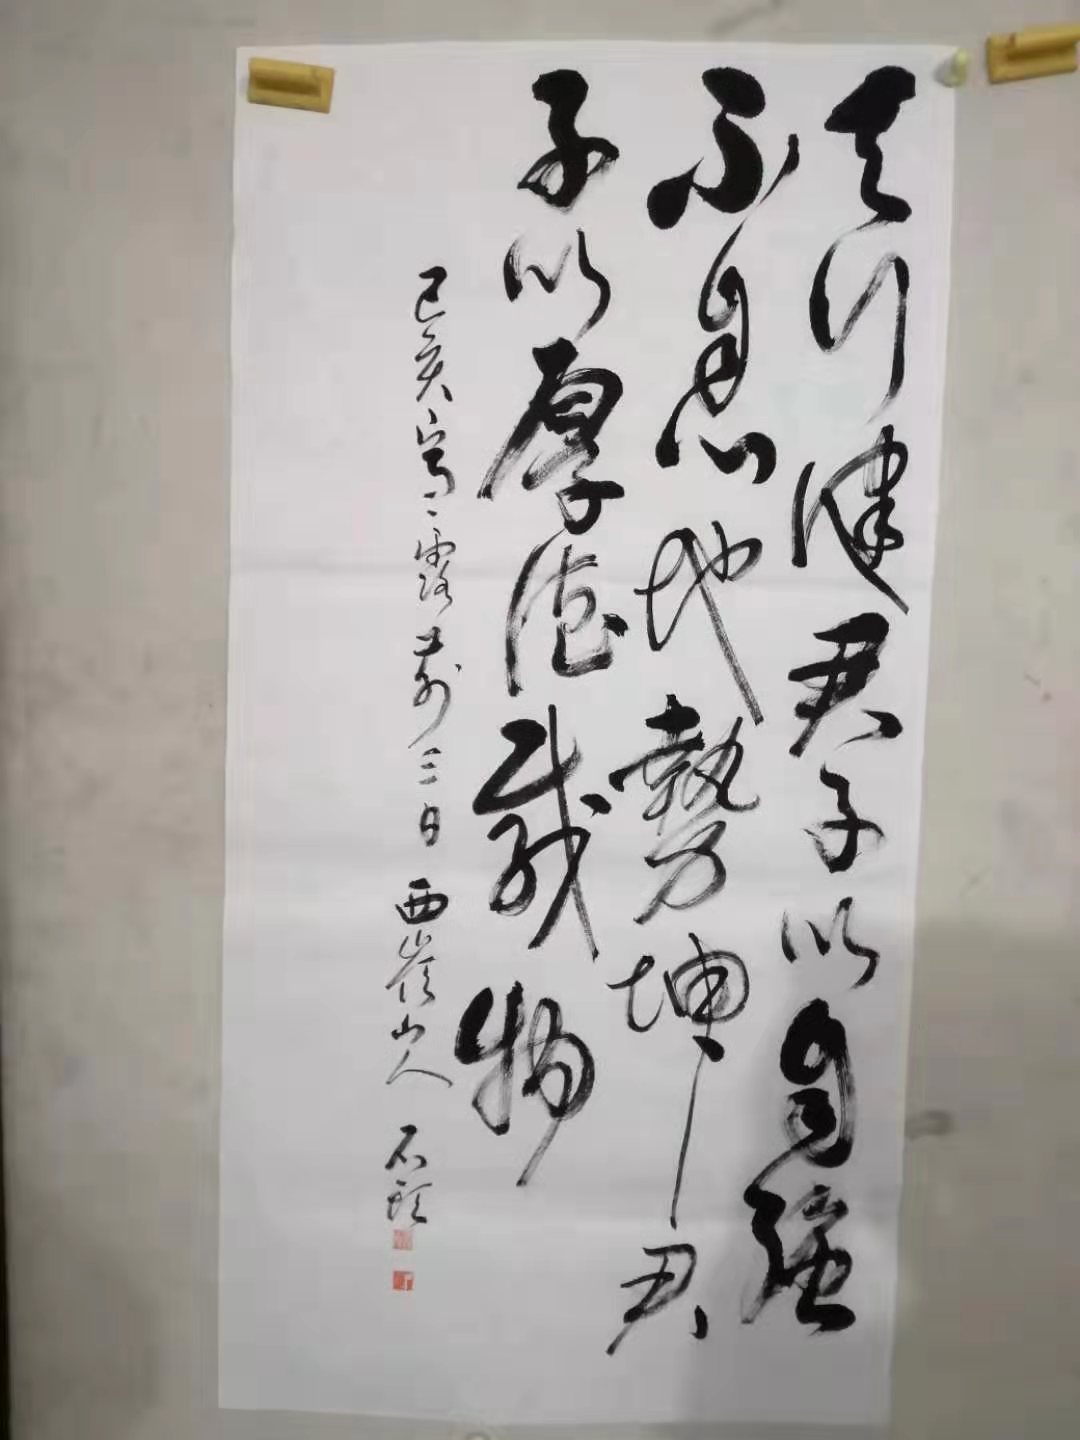 天行健君子以自强
不息地勢坤君
子以厚德载物
己亥寒露前三日西岩山人石頭